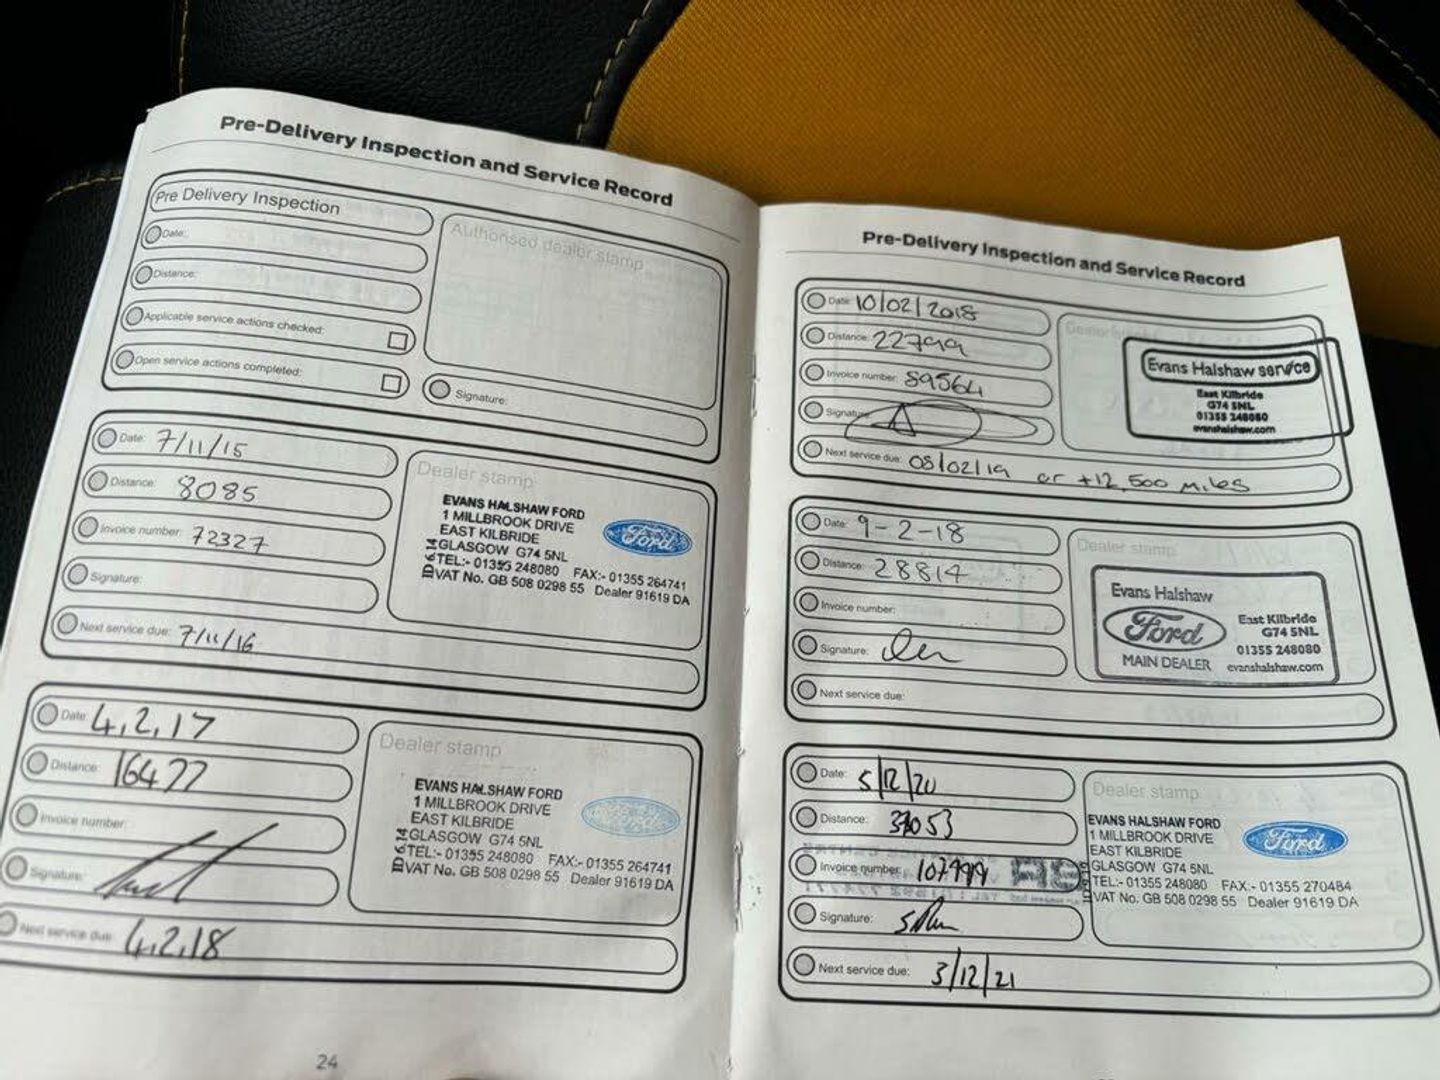 Pre-Delivery Inspection and Service Record
Pre Delivery Inspection
Date:
Distance:
Applicable service actions checked:
Open service actions completed:
Authorised dealer stamp
Signature:
Date: 7/11/15
Distance: 8085
Invoice number: 72327
Signature:
Next service due: 7/11/16
Dealer stamp
EVANS HALSHAW FORD
1 MILLBROOK DRIVE
EAST KILBRIDE
GLASGOW G74 5NL
TEL:- 01355 248080 FAX:- 01355 264741
VAT No. GB 508 0298 55 Dealer 91619 DA
ID 6.14
Ford
Date: 4.2.17
Distance: 16477
Invoice number:
Signature:
Next service due: 4.2.18
Dealer stamp
EVANS HALSHAW FORD
1 MILLBROOK DRIVE
EAST KILBRIDE
GLASGOW G74 5NL
TEL:- 01355 248080 FAX:- 01355 264741
VAT No. GB 508 0298 55 Dealer 91619 DA
ID 6.14
Ford
24
Pre-Delivery Inspection and Service Record
Date: 10/02/2018
Distance: 22799
Invoice number: 89564
Signature:
Next service due: 08/02/19 or +12,500 miles
Evans Halshaw service
East Kilbride
G74 5NL
01355 248080
evanshalshaw.com
Date: 9-2-18
Distance: 28814
Invoice number:
Signature:
Next service due:
Dealer stamp
Evans Halshaw
Ford
MAIN DEALER
East Kilbride
G74 5NL
01355 248080
evanshalshaw.com
Date: 5/12/20
Distance: 39053
Invoice number: 107999
Signature:
Next service due: 3/12/21
Dealer stamp
EVANS HALSHAW FORD
1 MILLBROOK DRIVE
EAST KILBRIDE
GLASGOW G74 5NL
TEL:- 01355 248080 FAX:- 01355 270484
VAT No. GB 508 0298 55 Dealer 91619 DA
Ford